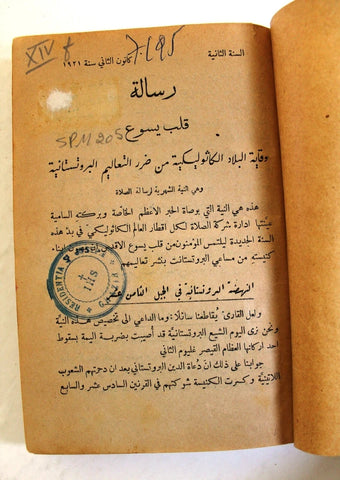 XIV f
7195
السنة الثانية
كانون الثاني سنة ١٩٢١
رسالة
قلب يسوع
SPM 205
وقاية البلاد الكاثوليكية من ضرر التعاليم البروتستانتية
وهي النية الشهرية لرسالة الصلاة
هذه هي النية التي بوصاة الحبر الاعظم الخاصة وبركته السامية
عينتها ادارة شركة الصلاة لكل اقطار العالم الكاثوليكي في بدء هذه
السنة الجديدة ليلتمس المؤمنون من قلب يسوع الاقدس
كنيسته من مساعي البروتستانت بنشر تعاليمهم
النهضة البروتستانية في الجيل الثامن عشر
ولعل القارئ يقاطعنا سائلًا: وما الداعي الى تخصيص هذه النية
ونحن نرى اليوم الشيع البروتستانية قد أصيبت بضربة اليمة بسقوط
احد اركانها العظام القيصر غليوم الثاني
جوابنا على ذلك ان دُعاة الدين البروتستاني بعد ان دحرتهم الشعوب
اللاتينية وكسرت الكنيسة شوكتهم في القرنين السادس عشر والسابع
RESIDENTIA S. J.
IHS